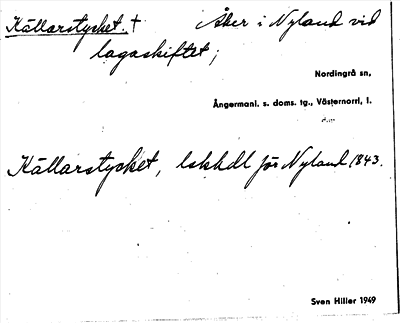 Källarstycket. † Åker i Nyland vid
lagaskiftet;
Nordingrå sn,
Ångermanl. s. doms. tg., Västernorrl, l.
Källarstycket, lskhdl för Nyland 1843.
Sven Hiller 1949